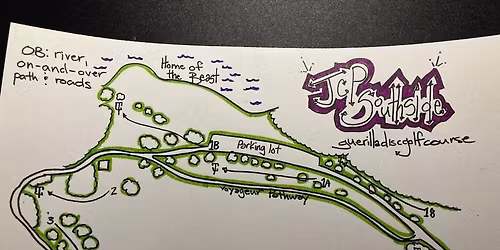 OB: river,
on-and-over
path & roads
Home of
the Beast
JCP
Southside
guerilladiscgolfcourse
Parking lot
1B
1A
Voyageur Pathway
18
2
3